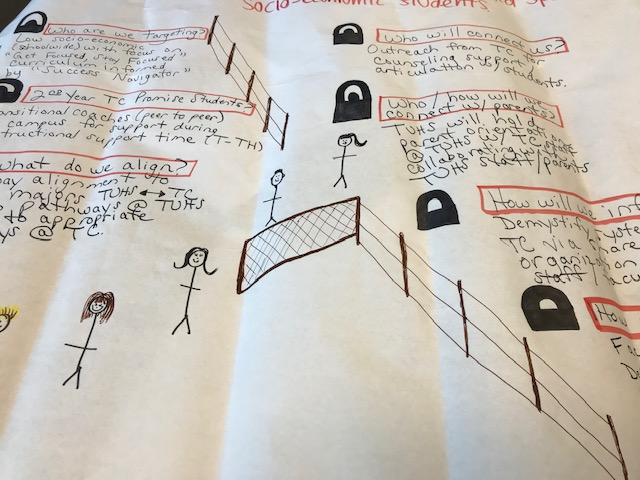 Socio-economic students
Who are we targeting?
Low socio-economic
(schoolwide) with focus on
"Get Focused, Stay Focused"
curriculum informed
by "Success Navigator"
Year TC Promise Students?
ansitional coaches (peer to peer)
campus for support during
tructional support time (T-TH)
What do we align?
alignment to
TUHS ↔ TC
pathways @ TUHS
to appropriate
ys @ TC.
Who will connect us?
Outreach from TC for
counseling support for
articulation w/students.
Who / how will we
connect w/ parents?
TUHS will hold
parent orientation
@ TUHS w/ TC staff
Collaborating w/
TUHS staff/parents
How will we in
Demystify
TC via
organiz
staff
How
Fac